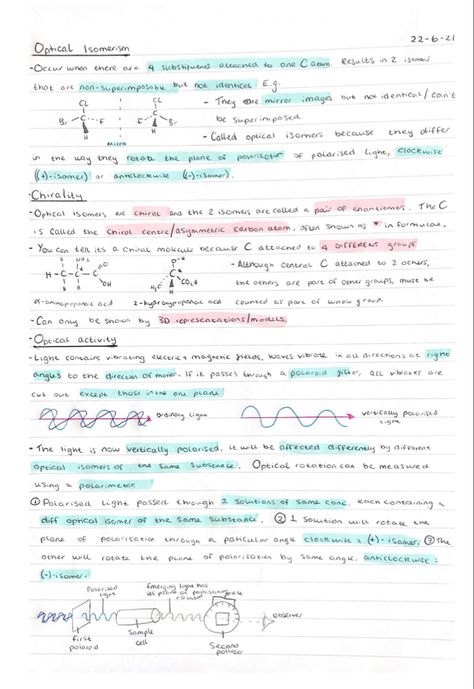 22-6-21
Optical Isomerism
-Occur when there are 4 substituents attached to one C atom. Results in 2 isomers
that are non-superimposable but not identical E.g:
CL CL
C C
Br F F Br
H H
mirror
- They are mirror images but not identical/can't
be superimposed.
- Called optical isomers because they differ
in the way they rotate the plane of polarisation of polarised light, clockwise
((+)-isomer) or anticlockwise ((-)-isomer).
-Chirality
-Optical isomers are chiral and the 2 isomers are called a pair of enantiomers. The C
is called the chiral centre/asymmetric carbon atom, often shown as * in formulae.
- You can tell its a chiral molecule because C attached to 4 DIFFERENT groups
H-C-C-C
OH
H
CO2H
α-aminopropanoic acid 2-hydroxypropanoic acid
-Although central C attached to 2 others,
the others are part of other groups, must be
counted as part of whole group.
-Can only be shown by 3D representations/models.
-Optical activity
-Light contains vibrating electric + magnetic fields, waves vibrate in all directions at right
angles to the direction of motion. If it passes through a polaroid filter, all vibrations are
cut out except those in the one plane
ordinary light
vertically polarised
light
- The light is now vertically polarised, it will be affected differently by different
optical isomers of the same substance. Optical rotation can be measured
using a polarimeter.
① Polarised light passed through 2 solutions of same conc, each containing a
diff optical isomer of the same substance. ② 1 solution will rotate the
plane of polarisation through a paticular angle clockwise = (+)- isomer. ③ The
other will rotate the plane of polarisation by same angle. anticlockwise =
(-)-isomer.
Polarised
light
Emerging light has
its plane of polarisation
rotated
first
polaroid
Sample
cell
Second
polaroid
observer